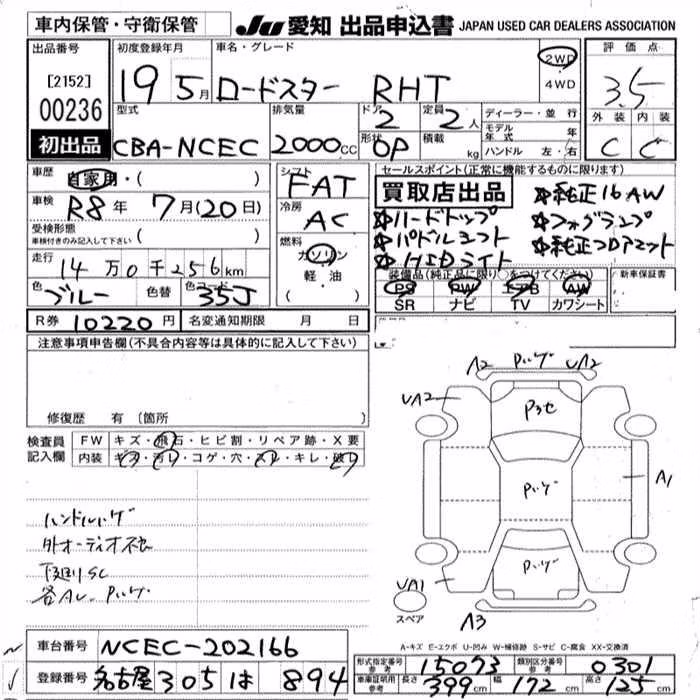 車内保管・守衛保管
JU 愛知 出品申込書 JAPAN USED CAR DEALERS ASSOCIATION
出品番号 初度登録年月 車名・グレード 評価点
[2152] 19 5月 ロードスター RHT 2WD・4WD 3.5
00236
初出品
型式 排気量 ドア 定員 ディーラー・並行 外装 内装
CBA-NCEC 2000cc 2 2人 モデル年式 年 C C
形状 積載 ハンドル 左・右
OP kg
車歴 自家用・( ) シフト セールスポイント(正常に機能するものに限ります)
FAT 買取店出品 ☆純正16AW
車検 R8年 7月(20日) 冷房 AC ☆ハードトップ ☆フォグランプ
受検形態 ( ) ☆パドルシフト ☆純正フロアマット
車検付きのみ記入して下さい 燃料 ☆HIDライト
走行 14万0千256km ガソリン・軽油・( )
装備品(純正品に限り○をつけてください) 新車保証書
色 ブルー 色替 色コード 35J PS PW AW
SR ナビ TV カワシート
R券 10220円 名変通知期限 月 日
注意事項申告欄(不具合内容等は具体的に記入して下さい)
修復歴 有 〔箇所 〕
検査員記入欄 FW キズ・飛石・ヒビ割・リペア跡・X要
内装 キズ・汚レ・コゲ・穴・スレ・キレ・破レ
A2 Pハゲ UA2
UA2 P3セ
Pハゲ A1
Pハゲ
UA1 A3
スペア
ハンドルハゲ
外オーディオ
下廻りSC
A-キズ E-エクボ U-凹み W-補修跡 S-サビ C-腐食 XX-交換済
車台番号 NCEC-202166
登録番号 名古屋 305 は 894
形式指定番号 参考 15073 類別区分番号 参考 0301
車庫証明用 参考 長さ 399cm 幅 172cm 高さ 125cm